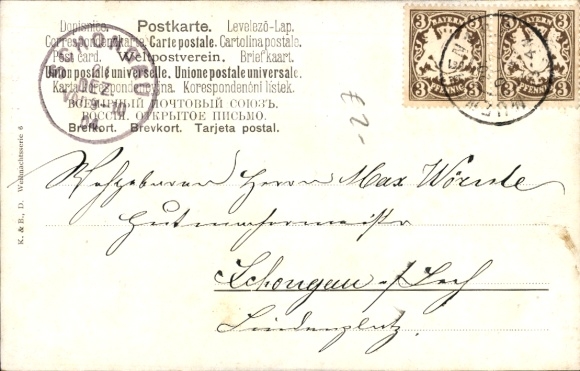 Dopisnice. Postkarte. Levelező-Lap.
Correspondenzkarte Carte postale. Cartolina postale.
Post card. Weltpostverein. Briefkaart.
Union postale universelle. Unione postale universale.
Karta korespondencyjna. Korespondenční listek.
ВСЕМІРНЫЙ ПОЧТОВЫЙ СОЮЗЪ.
РОССІЯ. ОТКРЫТОЕ ПИСЬМО.
Brefkort. Brevkort. Tarjeta postal.
SCHONGAU
DEZ.
BAYERN BAYERN
3 3 3 3
PFENNIG PFENNIG
£2-
K. & B., D. Weihnachtsserie 6
Wohlgeboren Herrn Max Wörnle
Hutmachermeister
Schongau a/Lech
Lindenplatz.